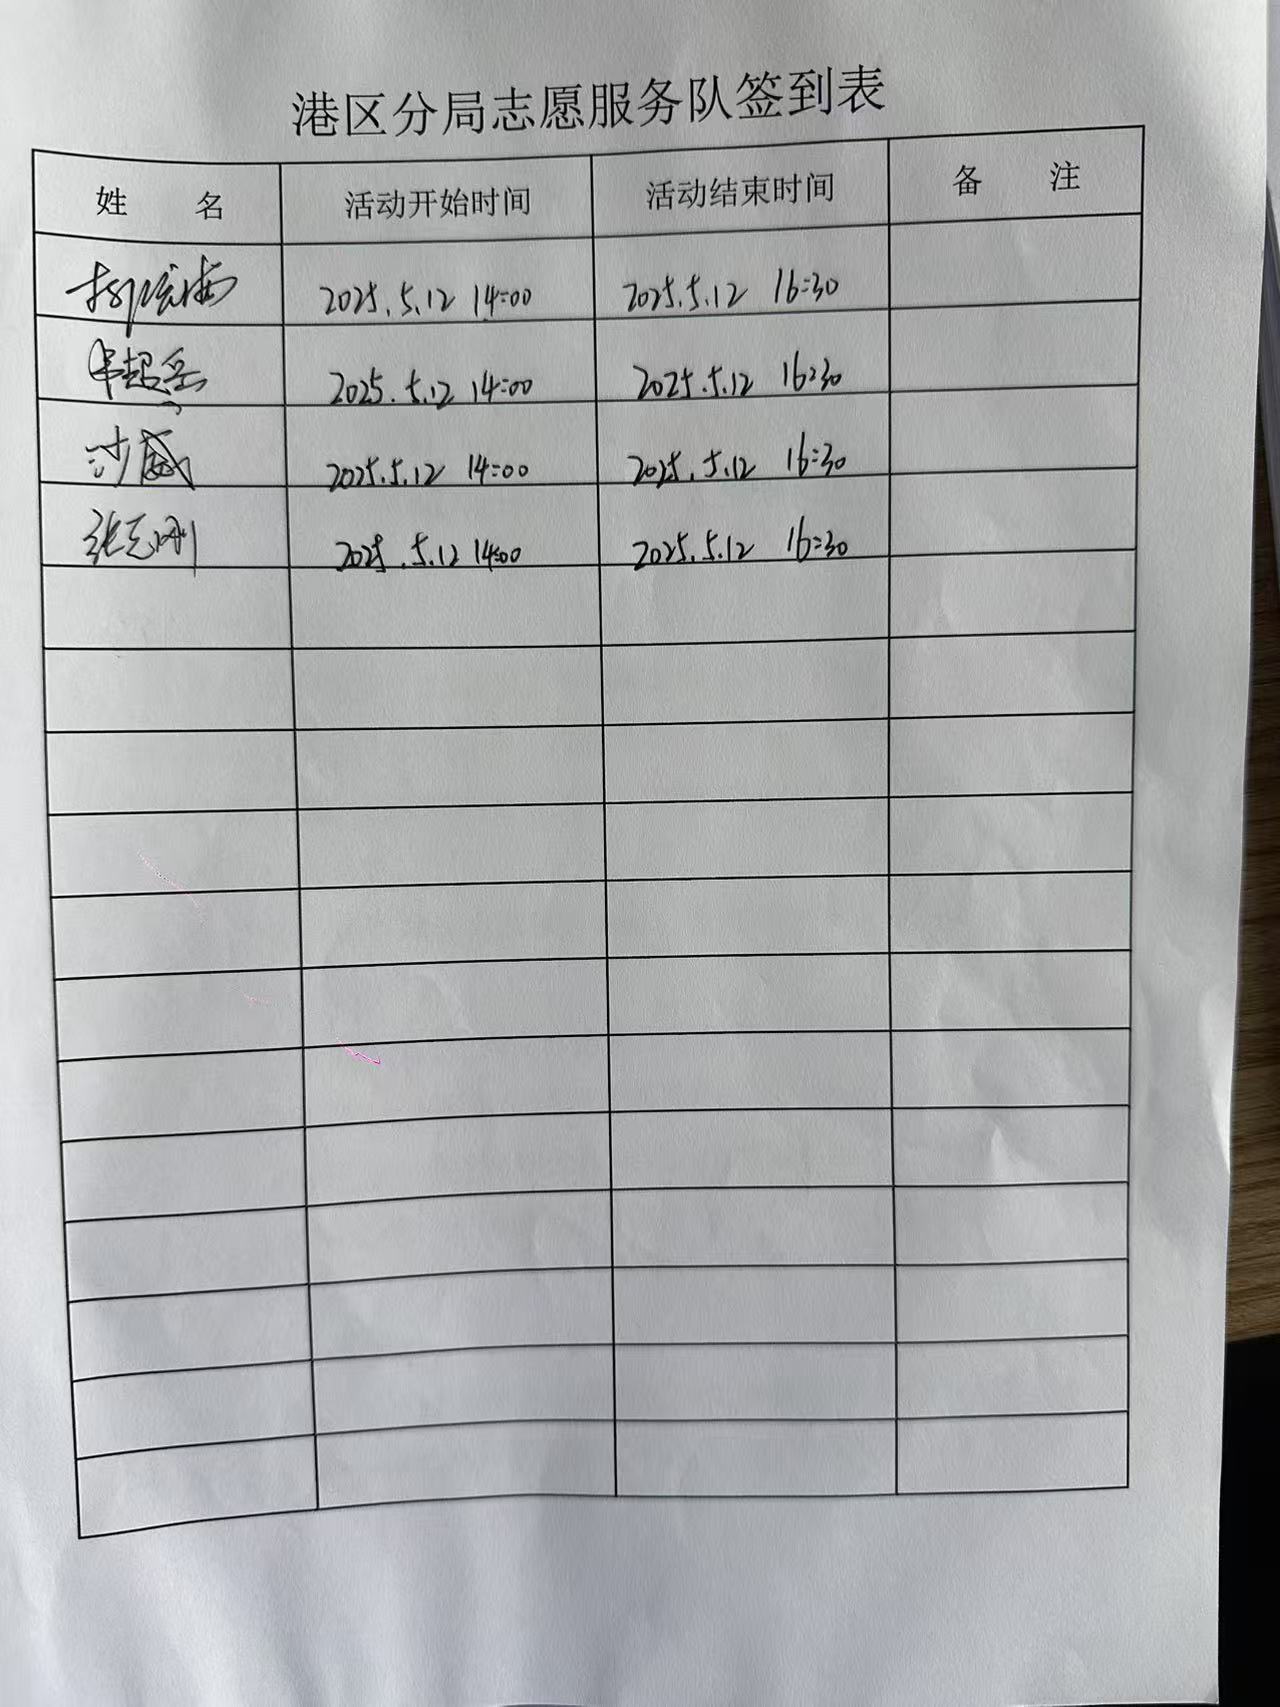 港区分局志愿服务队签到表
姓 名 活动开始时间 活动结束时间 备 注
2025.5.12 14:00 2025.5.12 16:30
2025.5.12 14:00 2025.5.12 16:30
沙威 2025.5.12 14:00 2025.5.12 16:30
张志刚 2025.5.12 14:00 2025.5.12 16:30